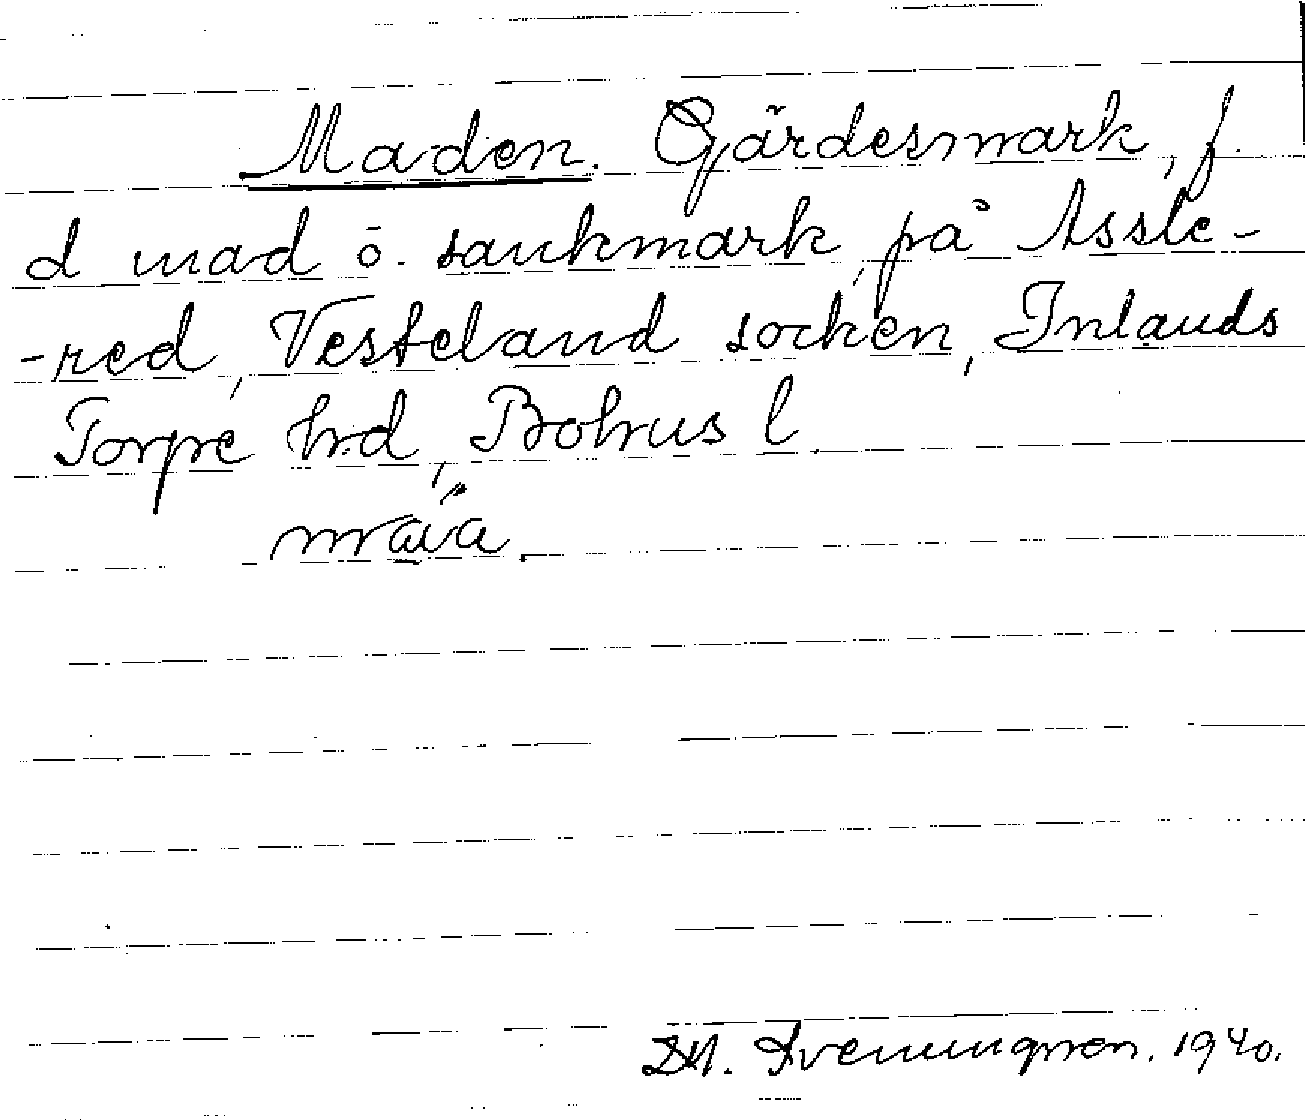 Maden. Gärdesmark, f.
d mad o. sankmark, på Assle-
-red, Vesteland socken, Inlands
Torpe hd, Bohus l.
1940.